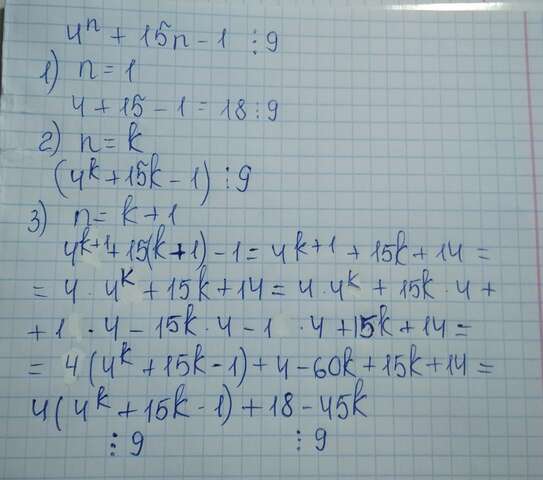 4ⁿ + 15n - 1 ⋮ 9
1) n = 1
4 + 15 - 1 = 18 ⋮ 9
2) n = k
(4ᵏ + 15k - 1) ⋮ 9
3) n = k + 1
4ᵏ⁺¹ + 15(k + 1) - 1 = 4ᵏ⁺¹ + 15k + 14 =
= 4 4ᵏ + 15k + 14 = 4 · 4ᵏ + 15k · 4 +
+ 1 · 4 - 15k · 4 - 1 · 4 + 15k + 14 =
= 4(4ᵏ + 15k - 1) + 4 - 60k + 15k + 14 =
4(4ᵏ + 15k - 1) + 18 - 45k
⋮ 9 ⋮ 9